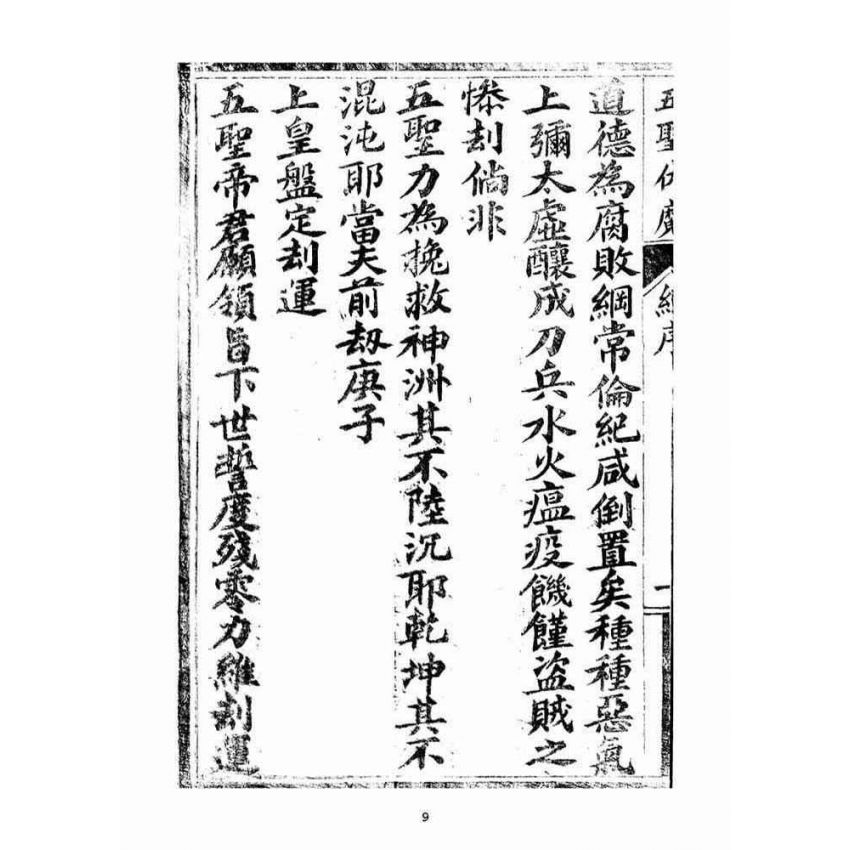 五聖伏魔 經序 一
道德為腐敗綱常倫紀咸倒置矣種種惡氣
上彌太虛釀成刀兵水火瘟疫饑饉盜賊之
慘刦倘非
五聖力為挽救神洲其不陸沉耶乾坤其不
混沌耶當夫前刼庚子
上皇盤定刦運
五聖帝君願領旨下世誓度殘零力維刦運
9